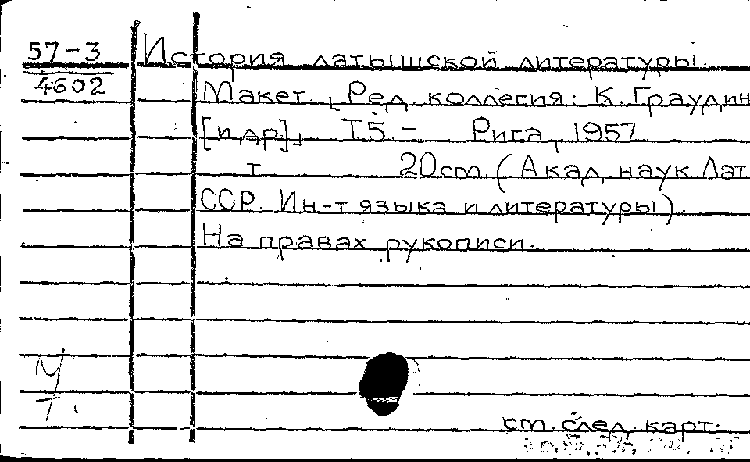 57-3
4602
История латышской литературы.
Макет. Ред. коллегия: К. Граудин
[и др]. Т.5. – Рига, 1957
т 20см. (Акад. наук Лат
ССР. Ин-т языка и литературы)
На правах рукописи.
см. след. карт.